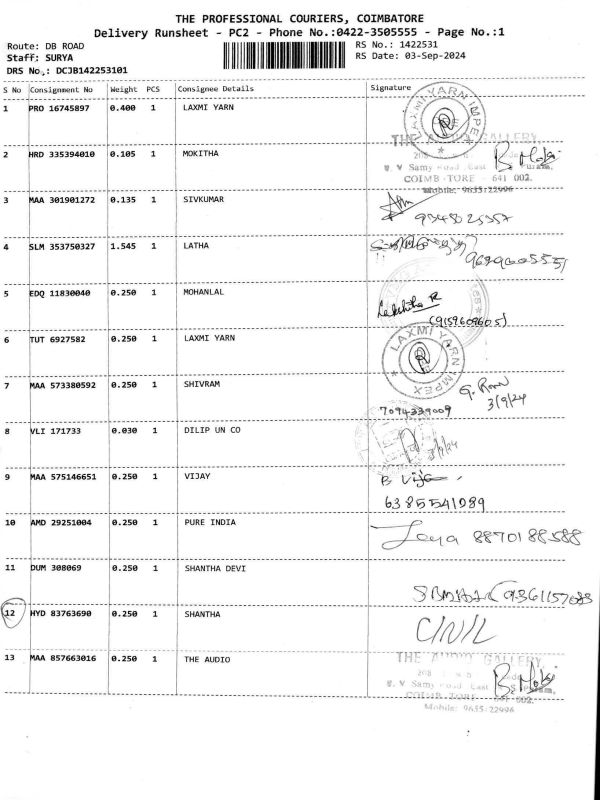 THE PROFESSIONAL COURIERS, COIMBATORE
Delivery Runsheet - PC2 - Phone No.:0422-3505555 - Page No.:1
Route: DB ROAD
Staff: SURYA
DRS No,: DCJB142253101
RS No.: 1422531
RS Date: 03-Sep-2024
S No Consignment No Weight PCS Consignee Details Signature
1 PRO 16745897 0.400 1 LAXMI YARN
LAXMI YARN IMPEX
THE AUDIO GALLERY
2 HRD 335394010 0.105 1 MOKITHA
Samy Road East
COIMB TORE - 641 002.
Mobile: 9655:22996
3 MAA 301901272 0.135 1 SIVKUMAR
4 SLM 353750327 1.545 1 LATHA
9629605551
5 EDQ 11830040 0.250 1 MOHANLAL
Lakshitha R
(9159609605)
6 TUT 6927582 0.250 1 LAXMI YARN
LAXMI YARN IMPEX
7 MAA 573380592 0.250 1 SHIVRAM
3/9/24
7094339009
8 VLI 171733 0.030 1 DILIP UN CO
9 MAA 575146651 0.250 1 VIJAY
6385541989
10 AMD 29251004 0.250 1 PURE INDIA
Jaya 8870188588
11 DUM 308069 0.250 1 SHANTHA DEVI
12 HYD 83763690 0.250 1 SHANTHA
C/N/L
13 MAA 857663016 0.250 1 THE AUDIO
THE AUDIO GALLERY
Samy Road East
COIMB TORE 641 002.
Mobile: 9655:22996